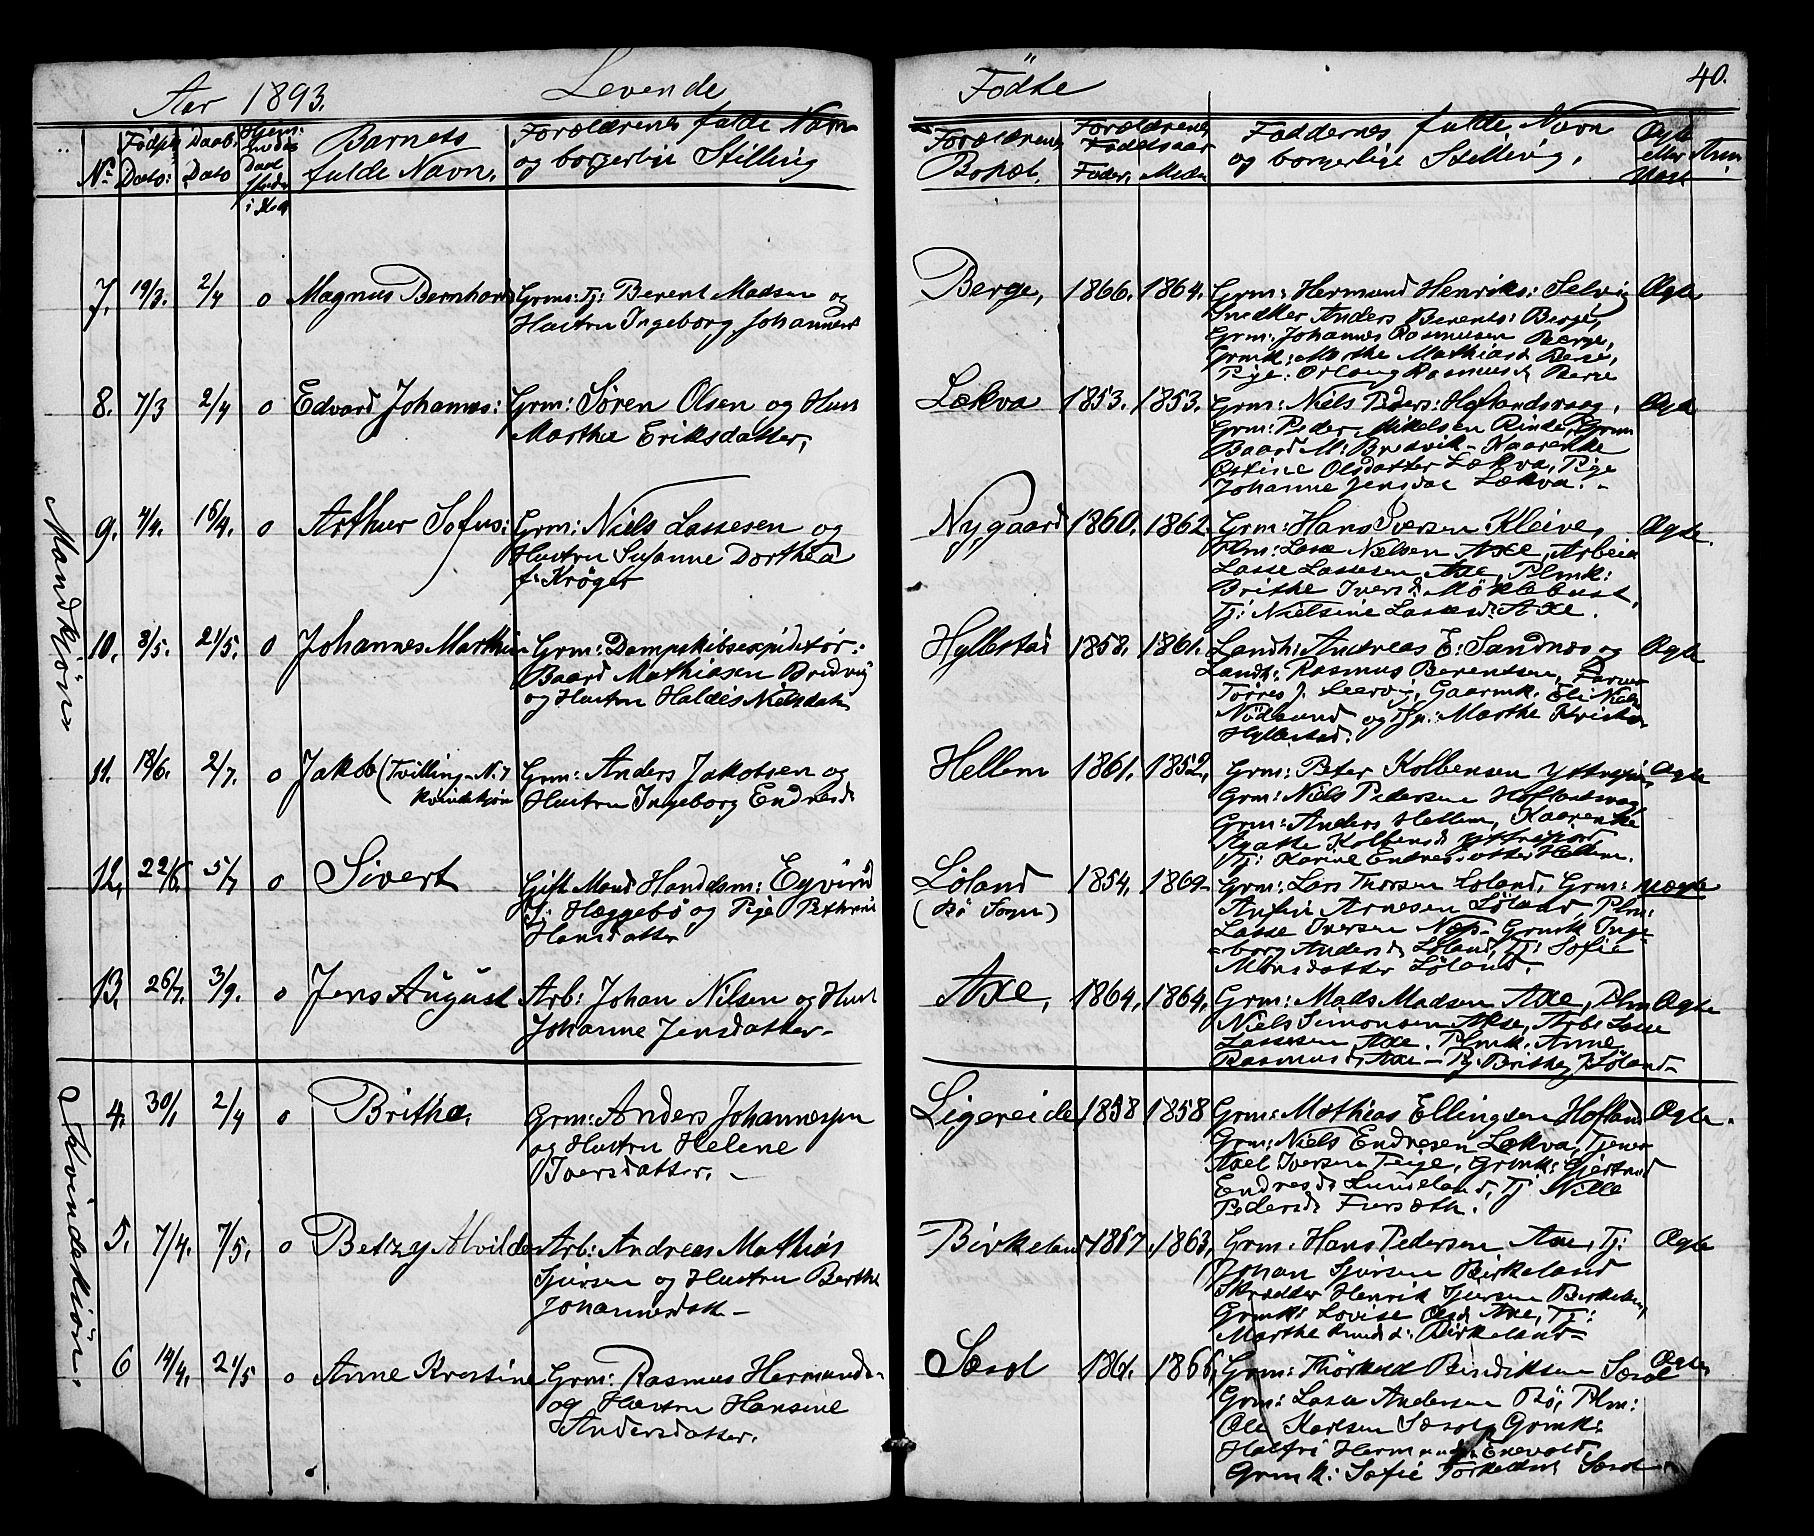 Aar 1893. Levende Födte 40.
No Födsels Dato: Daabs Dato Hjem: Barnets fulde Navn. Forældrenes fulde Navn og borgerlige Stilling
Forældrenes Bopæl. Forældrenes Födselsaar Fader. Moder Faddernes fulde Navn og borgerlige Stilling. Ægte eller Uægt Anm.
Mandkjön
7. 19/3. 2/4 0 Magnus Bernhard Grms: Tj: Berent Madsen og
Hustru Ingeborg Johannesd
Berge, 1866. 1864. Grm: Hermund Henriks: Selvig Ægte
Snedker Anders Berents: Berge,
Grm: Johannes Rasmussen Berge,
Grmk: Marthe Mathiasd Berge,
Pige: Rasmusd Berge
8. 7/3 2/4 0 Edvard Johannes: Grm: Sören Olsen og Hust
Marthe Eriksdatter,
Lækva 1853. 1853. Grm: Niels Peders: Hoflandsvaag, Ægte
Grm: Peder Mikelsen Rinde, Grm
Baard M: Bredvik - Kaarenke
Olsdatter Lækva, Pige
Johanne Jensdat Lækva. -
9. 4/4. 16/4. 0 Arthur Sofus: Grm: Niels Lassesen og
Hustru Susanne Dorthea
f: Kröger
Nygaard 1860. 1862. Grm: Hans Iversen Kleive, Ægte.
Plm: Lasse Nielsen Axe, Arbeid
Lasse Lassesen Axe, Plmk:
Brithe Iversd Möklebust,
Tj: Nielsine Lassesd: Axe.
10. 8/5. 21/5. 0 Johannes Marthin Grm: Dampskibsexpiditör:
Baard Mathiasen Bredvig
og Hustru Haldis Nielsdat
Hyllestad 1858. 1861. Landh: Andreas E: Sandnes og Ægte
Landh: Rasmus Berentsen,
Torres J. Leervg, Gaarmk. Eli Niels
Nödsund og Marthe Krist
Hyllestad.
11. 18/6. 2/7. 0 Jakob (Tvilling - N. 7 Grm: Anders Jakobsen og
Kvindekjön Hustru Ingeborg Endresd
Hellem 1861. 1852, Grm: Peter Kolbensen Yttrefjor, Ægte
Grm: Niels Pedersen Hoflandsvag,
Grm: Anders Hellem, Kaarenke
Agatte Kolbensd Yttrefjord
Tj: Karine Endresdatter Hellem.
12, 22/6. 5/7 0 Sivert Gift Mand Handelsm: Eyvind
J: Hæggebö og Pige Pethrine
Hansdatter
Löland 1854, 1869- Grm: Lars Thorsen Löland, Grm: Uægte
(Bö Sogn) Anfin Arnesen Löland, Plm:
Lasse Iversen Næs- Grmk Inge-
-borg Andersd Löland, Tj: Sofie
Mönsdatter Löland.
13. 26/7. 3/9. 0 Jens August Arb: Johan Nilsen og Hust
Johanne Jensdatter -
Axe, 1864, 1864, Grm: Mads Madsen Axe, Plm Ægte
Niels Simonsen Akse, Arb: Lasse
Lassesen Axe. Plmk: Anne
Rasmusd, Axe - Pg: Brithe J: Löland -
Kvindekjön.
4. 30/1 2/4 0 Brithe, Grm: Anders Johannessen
og Hustru Helene
Iversdatter. -
Ligereide 1858 1858 Grm: Mathias Ellingsen Hofland Ægte.
Grm: Niels Endresen Lækva, Tjener
Axel Iversen Teige, Grmk: Gjertrud
Endresd Lundeland, Tj Nille
Pedersd Fursæth.
5. 7/4. 7/5. 0 Betzy Alvilde Arb: Andreas Mathias
Sjursen og Hustru Berthe
Johannesdatt -
Birkeland 1857. 1863, Grm. Hans Pedersen Axe, Tj: Ægte
Johan Sjursen Birkeland
Skrædder Henrik Sjursen Birkelan,
Grmk: Lovise Olsd Axe, Tj:
Marthe Knudsd: Birkeland -
6 14/4. 21/5 0 Anne Kristine Grm: Rasmus Hermunds-
og Hustru Hansine
Andersdatter.
Sæsol 1861. 1866, Grm: Thörkild Bendiksen Sæsol Ægte
Grm: Lasse Andersen Bö, Plm:
Ole Karlsen Sæsol, Grmk:
Halfri Hermundsd Enevold,
Grmk: Sofie Törkeldsd Sæsol